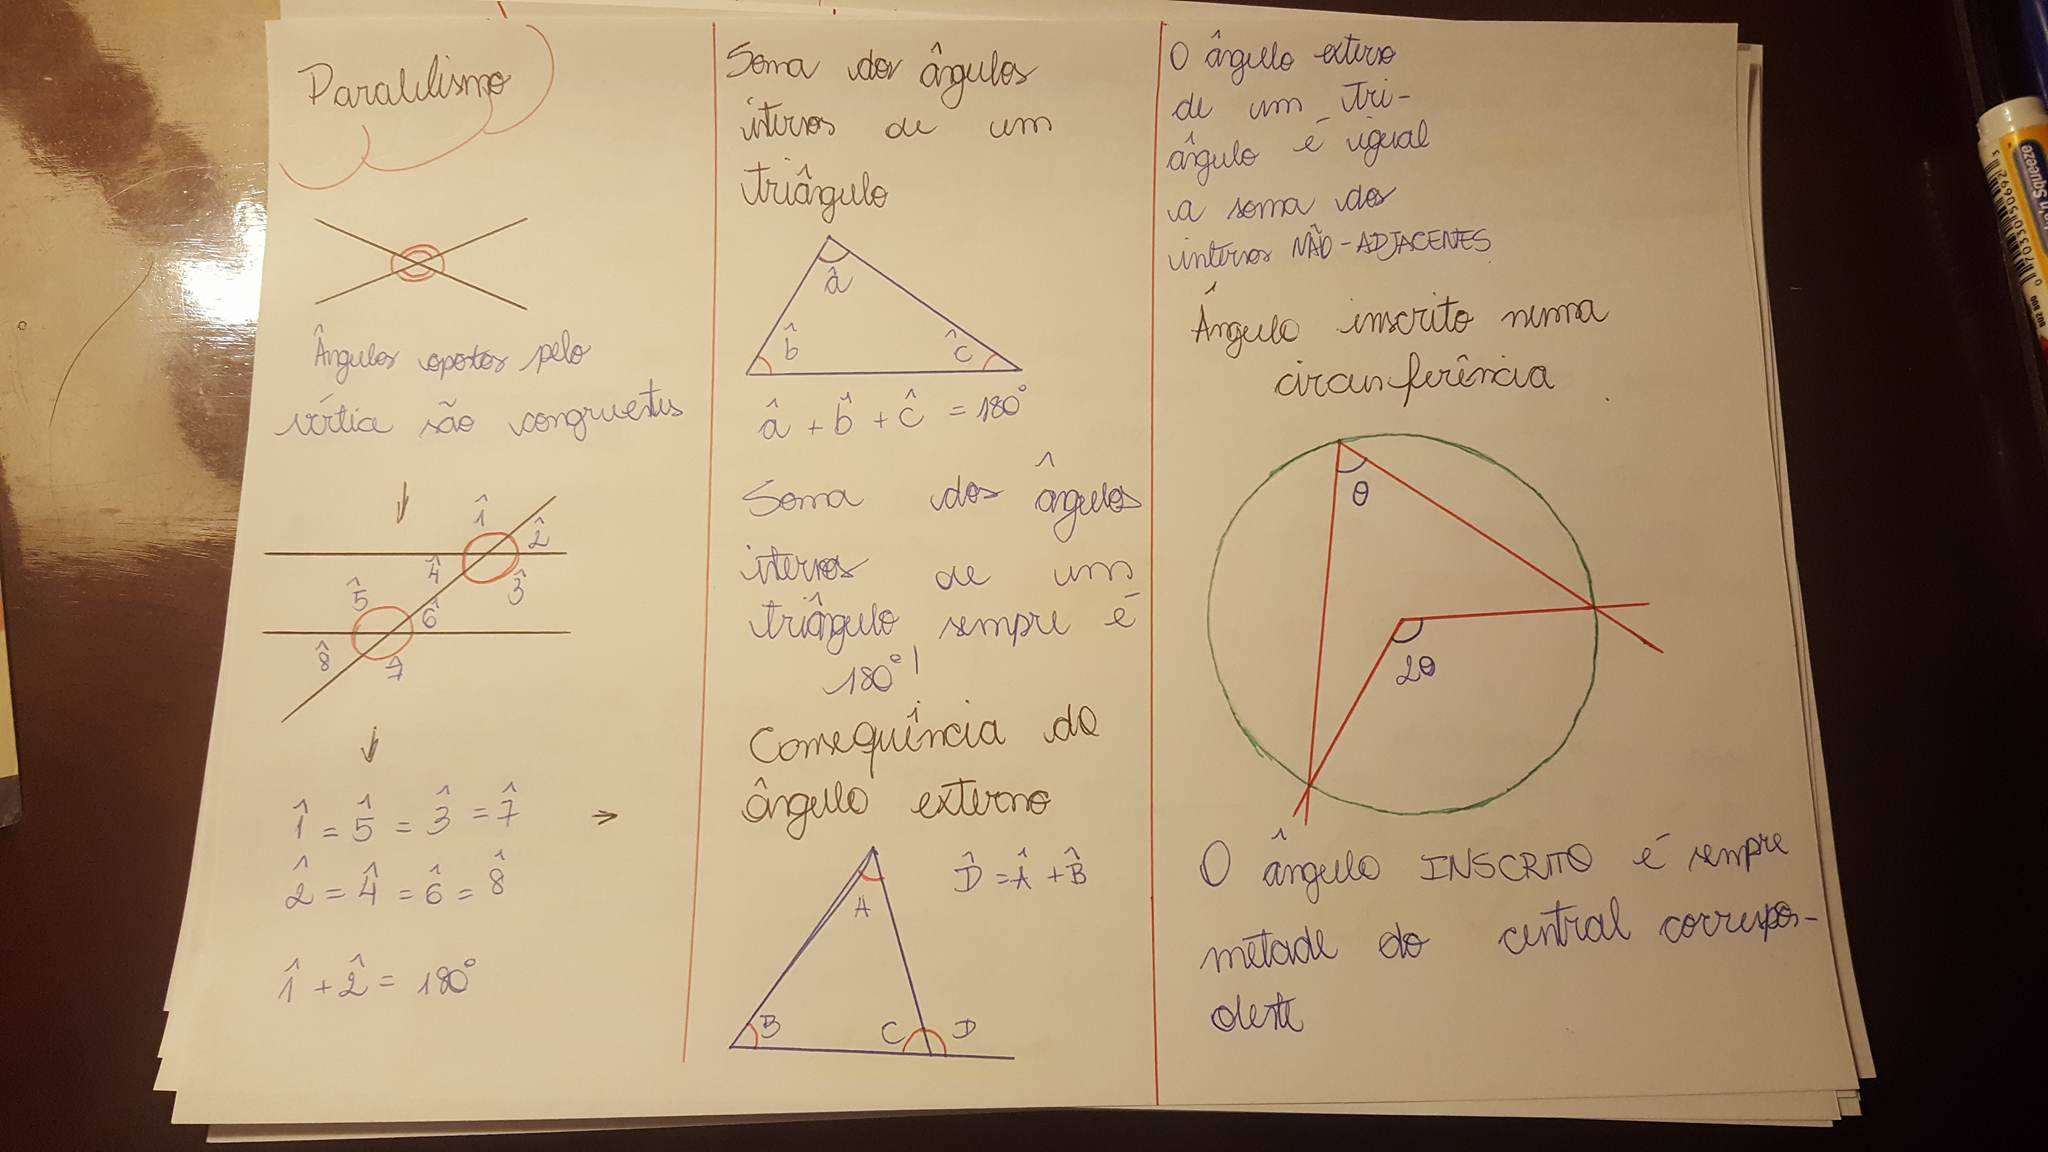 Paralelismo
Ângulos opostos pelo
vértice são congruentes
1̂ 2̂
4̂ 3̂
5̂ 6̂
8̂ 7̂
1̂ = 5̂ = 3̂ = 7̂
2̂ = 4̂ = 6̂ = 8̂
1̂ + 2̂ = 180°
Soma dos ângulos
internos de um
triângulo
â
b̂ ĉ
â + b̂ + ĉ = 180°
Soma dos ângulos
internos de um
triângulo sempre é
180°!
Consequência do
ângulo externo
D̂ = Â + B̂
A
B C D
O ângulo externo
de um tri-
ângulo é igual
a soma dos
internos NÃO-ADJACENTES
Ângulo inscrito numa
circunferência
θ
2θ
O ângulo INSCRITO é sempre
metade do central correspon-
dente
Squeeze